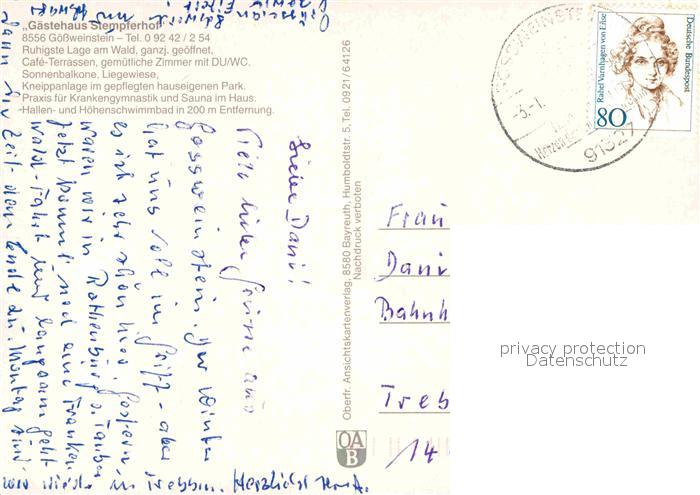 „Gästehaus Stempferhof“
8556 Gößweinstein – Tel. 0 92 42 / 2 54
Ruhigste Lage am Wald, ganzj. geöffnet,
Café-Terrassen, gemütliche Zimmer mit DU/WC.
Sonnenbalkone, Liegewiese,
Kneippanlage im gepflegten hauseigenen Park.
Praxis für Krankengymnastik und Sauna im Haus.
Hallen- und Höhenschwimmbad in 200 m Entfernung.
Liebe Dani!
Viele liebe Grüsse aus
Gössweinstein. Der Winter
hat uns voll im Griff - aber
es ist sehr schön hier. Gestern
waren wir in Rothenburg o. Tauber
Jetzt kommt noch eine Franken-
wald-Fahrt und langsam geht
dann die Zeit dem Ende zu. Montag sind
wir wieder in Trebbin. Herzlichst
Oberfr. Ansichtskartenverlag, 8580 Bayreuth, Humboldtstr. 5, Tel. 0921/64126
Nachdruck verboten
OA
B
Frau
Dani
Bahnh
Treb
14
GÖSSWEINSTE
-3.-1.
91327
Rahel Varnhagen von Ense
Deutsche Bundespost
80
privacy protection
Datenschutz